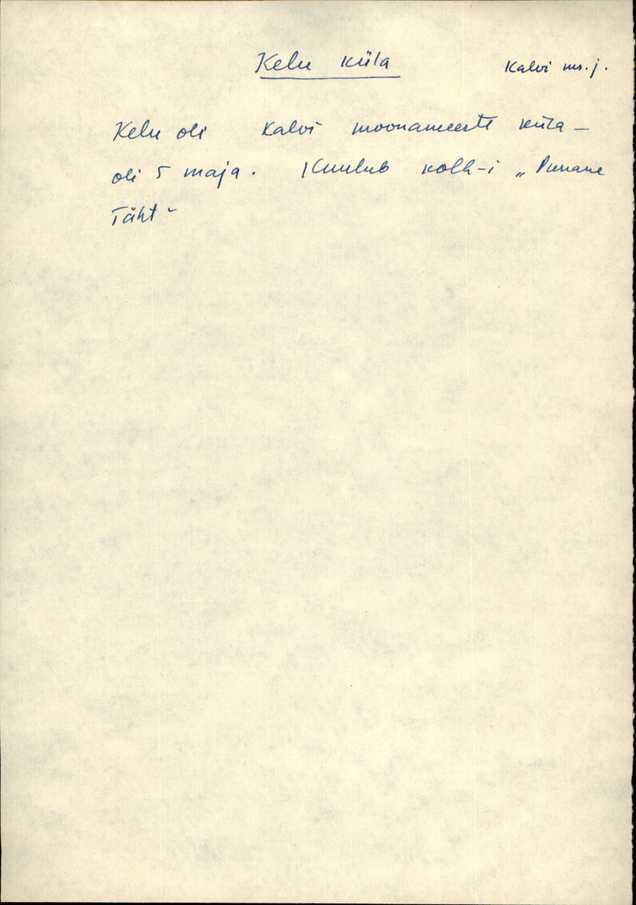 Kelu küla
Kalvi ms.j.
Kelu oli Kalvi moonameeste küla –
oli 5 maja. Kuulub kolh-i „Punane
Täht"